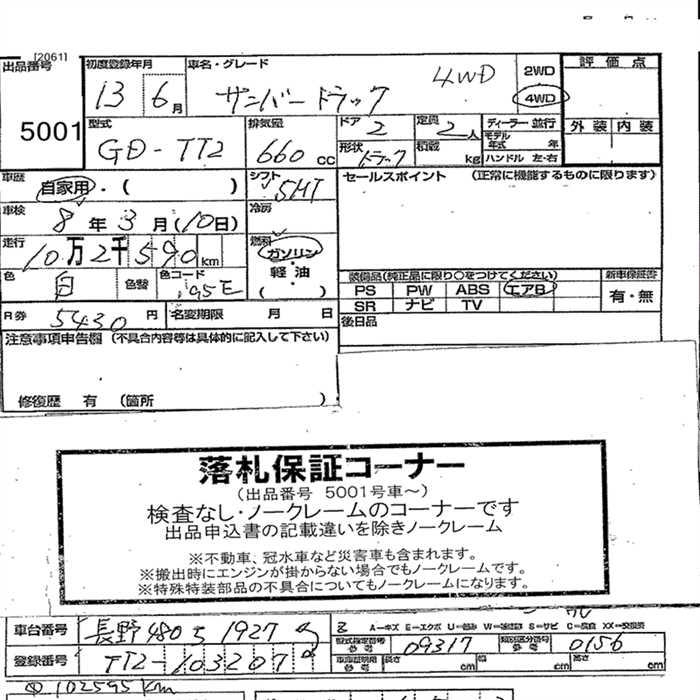 [2061]
出品番号 初度登録年月 車名・グレード 4WD 2WD 評価点
13 6月 サンバートラック 4WD
5001 型式 排気量 ドア 2 定員 2人 ディーラー・並行 外装 内装
GD-TT2 660cc 形状 トラック 積載 kg モデル年式 年
ハンドル 左・右
車歴 自家用・( ) シフト 5MT セールスポイント (正常に機能するものに限ります)
車検 8年3月(10日) 冷房
走行 10万2千590km 燃料 ガソリン
軽油
( )
色 白 色替 色コード 95E 装備品(純正品に限り○をつけてください) 新車保証書
PS PW ABS エアB 有・無
SR ナビ TV
R券 5430円 名変期限 月 日 後日品
注意事項申告欄 (不具合内容等は具体的に記入して下さい)
修復歴 有 (箇所 )
落札保証コーナー
(出品番号 5001号車～)
検査なし・ノークレームのコーナーです
出品申込書の記載違いを除きノークレーム
※不動車、冠水車など災害車も含まれます。
※搬出時にエンジンが掛からない場合でもノークレームです。
※特殊特装部品の不具合についてもノークレームになります。
A＝キズ E＝エクボ U＝凹み S＝サビ C＝腐食 XX＝交換済
車台番号 長野480 1927 型式指定番号 参考 09317 類別区分番号 参考 0156
登録番号 TT2-103207 長さ cm 幅 cm 高さ cm
102595km